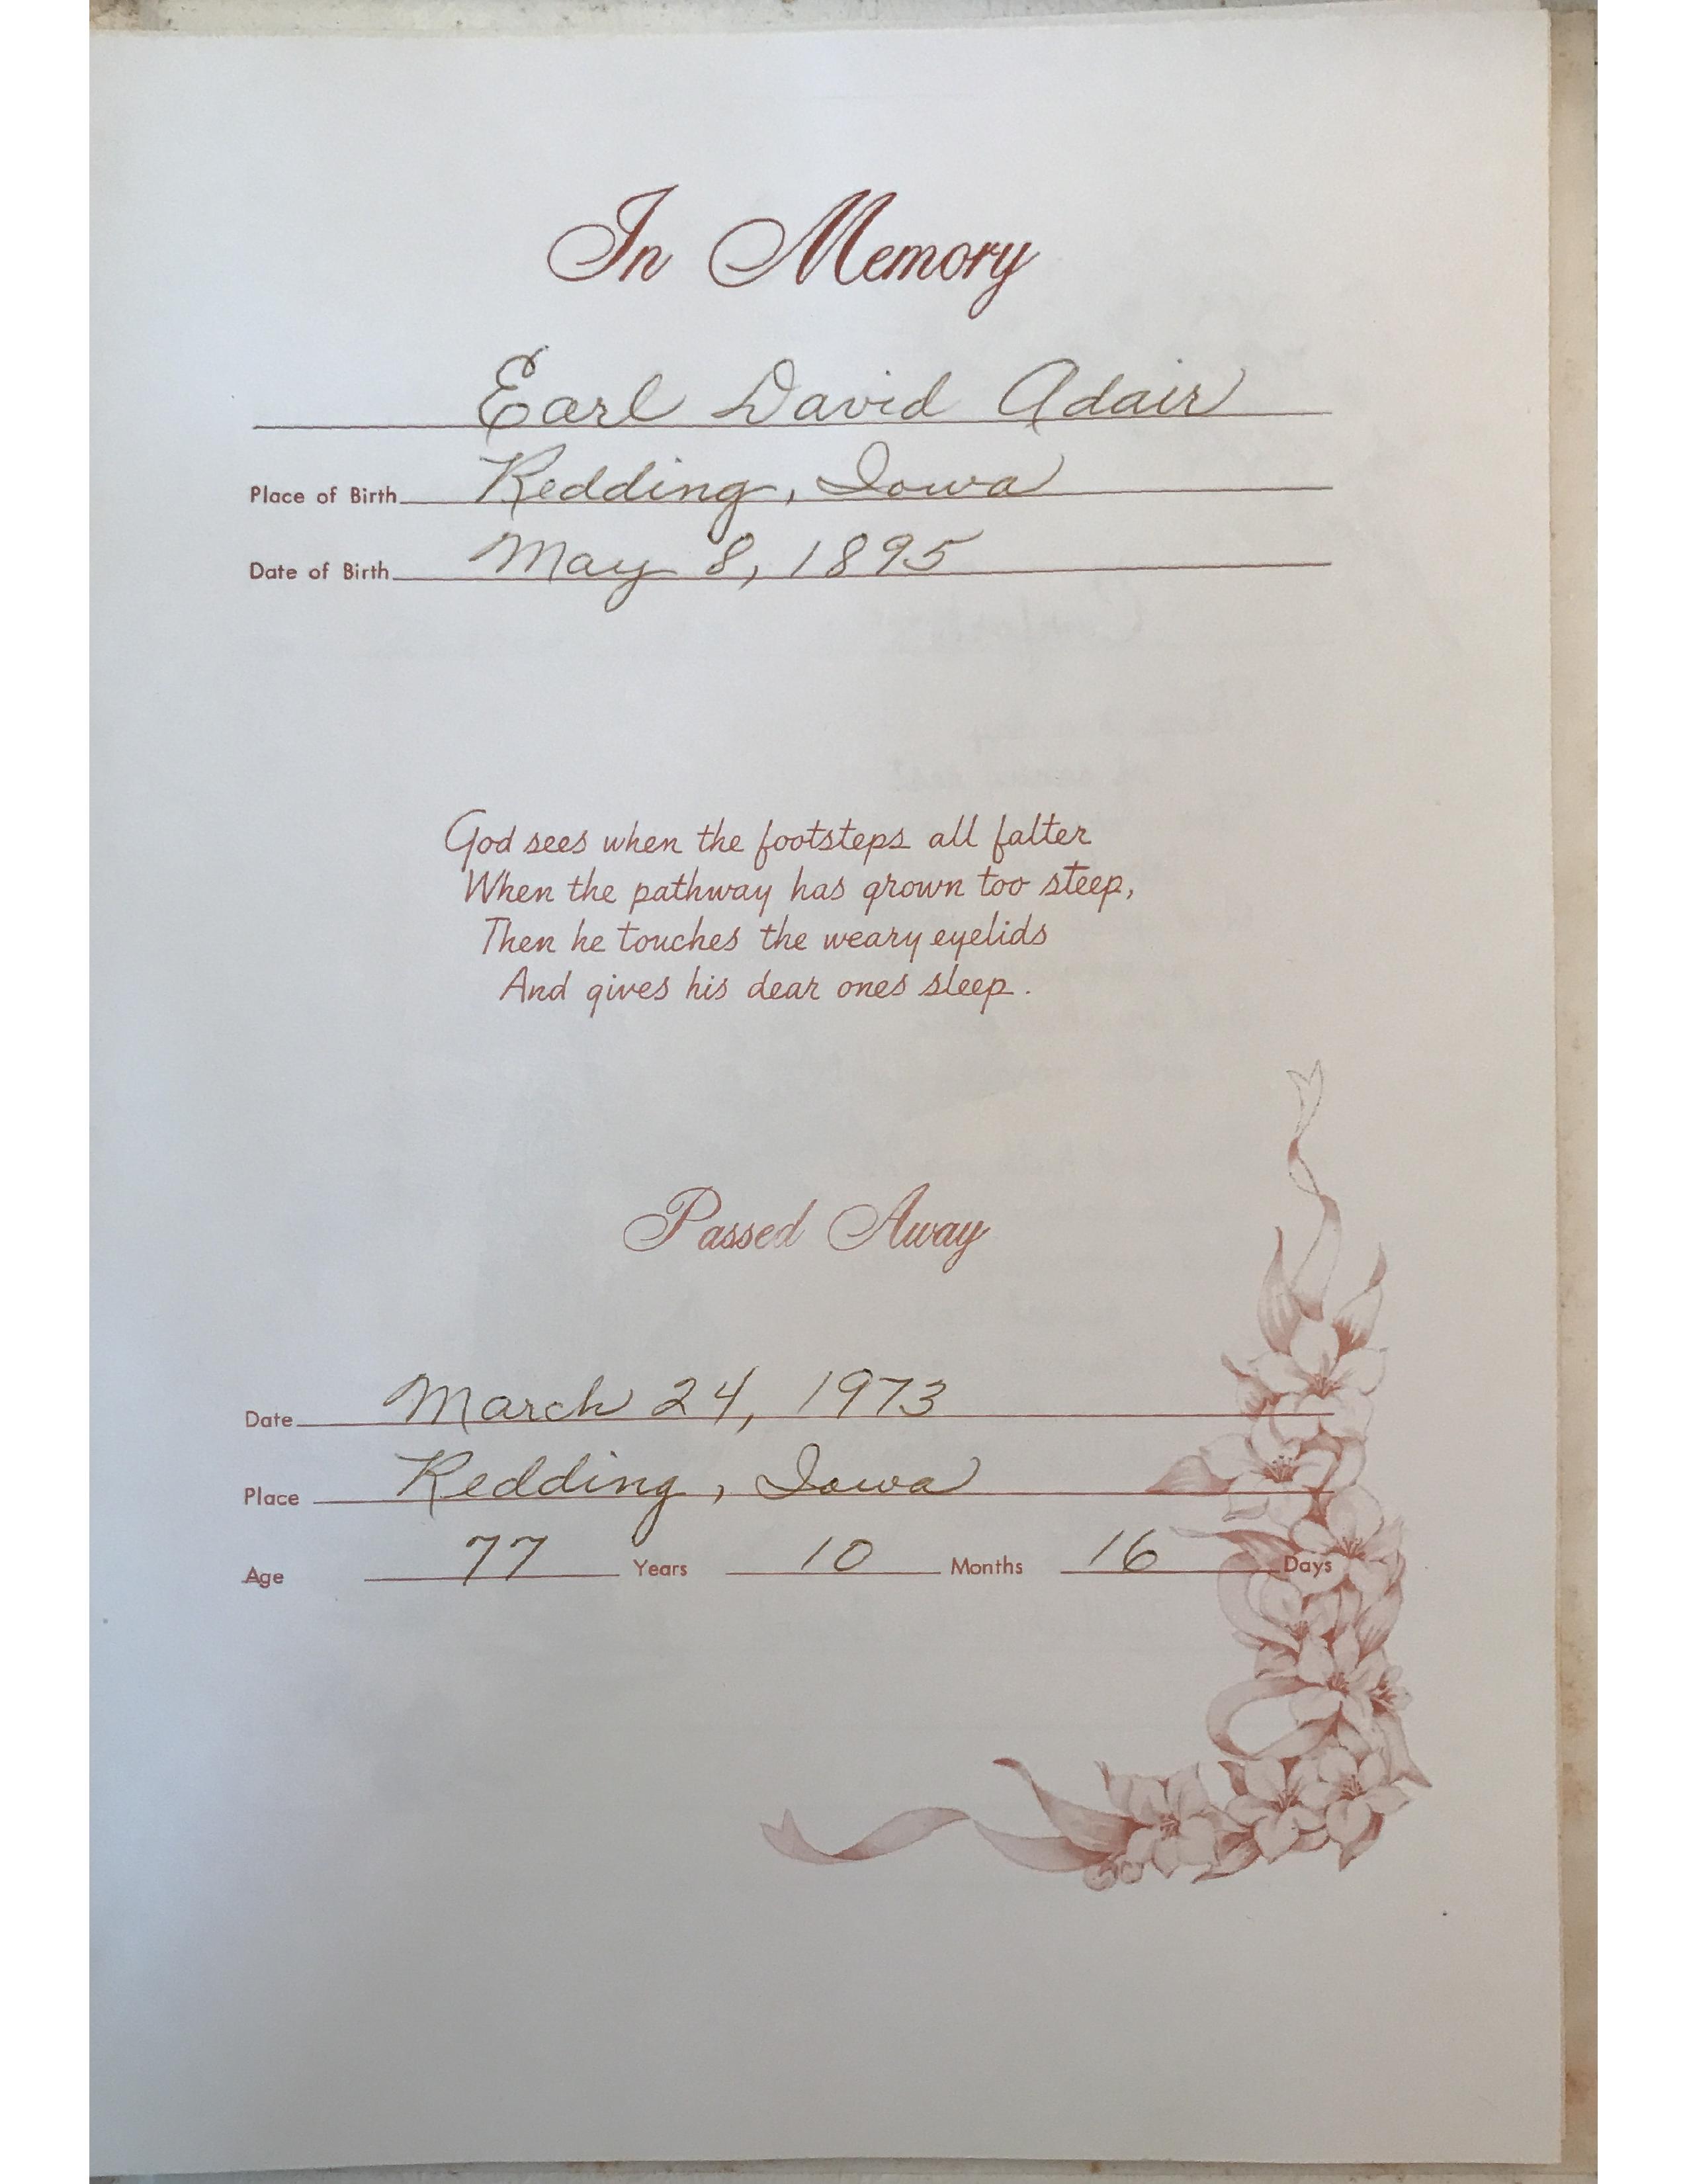 In Memory
Earl David Adair
Place of Birth Redding, Iowa
Date of Birth May 8, 1895
God sees when the footsteps all falter
When the pathway has grown too steep,
Then he touches the weary eyelids
And gives his dear ones sleep.
Passed Away
Date March 24, 1973
Place Redding, Iowa
Age 77 Years 10 Months 16 Days